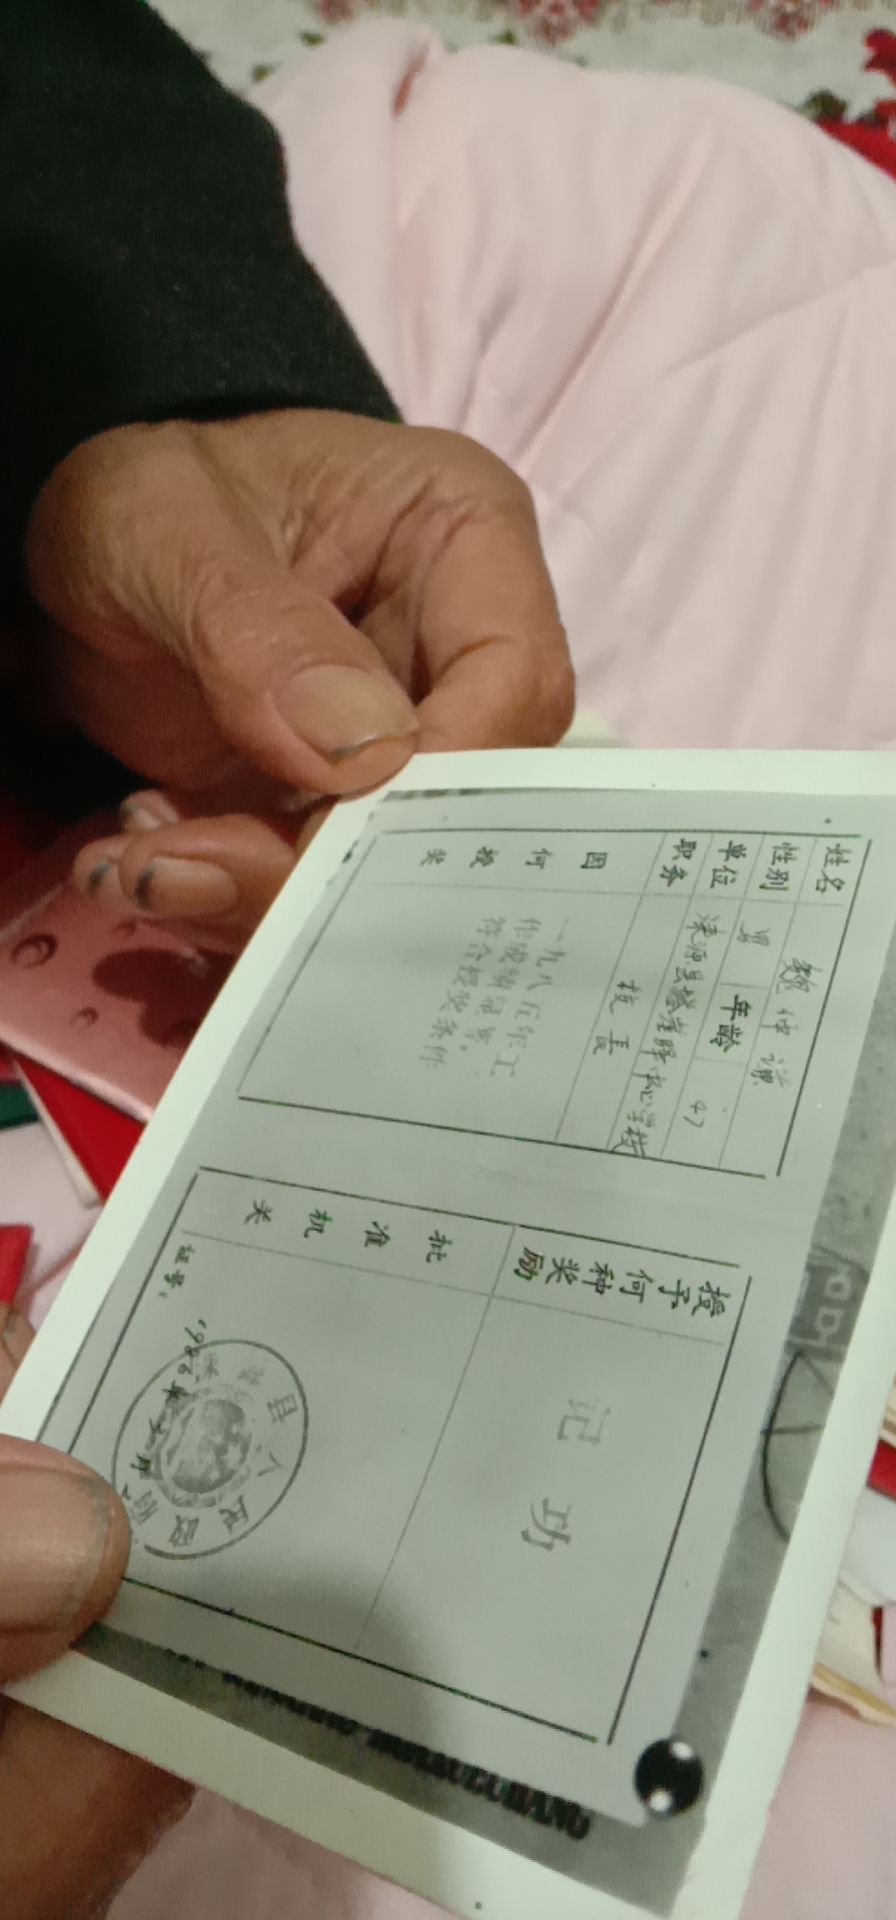 姓名 魏仲谋
性别 男 年龄 47
单位 涞源县塔崖驿中心学校
职务 校长
因何授奖
一九八五年工
作成绩显著,
符合授奖条件
授予何种奖励 记功
批准机关
县人民政府
证号: